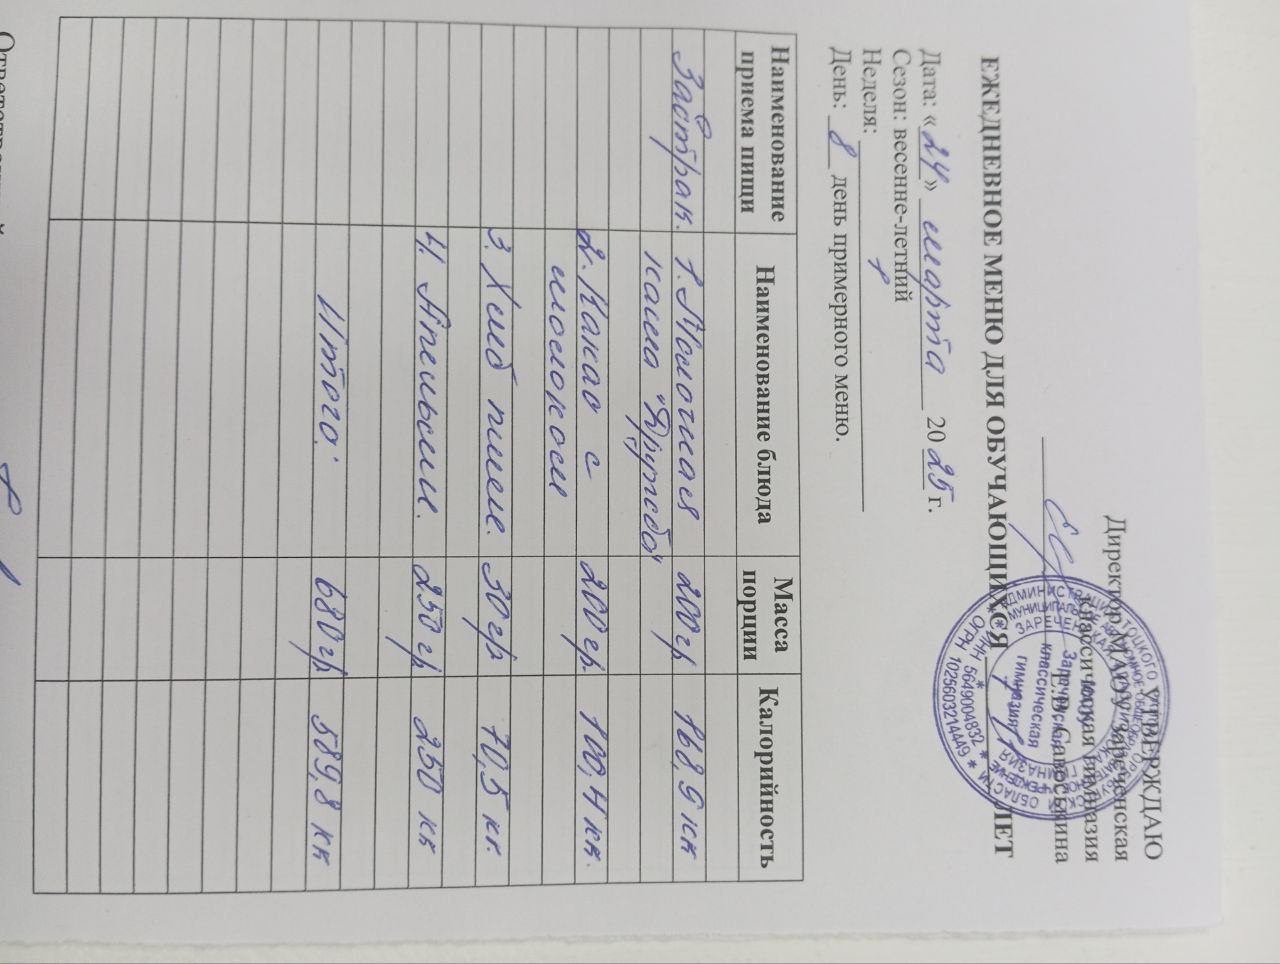 УТВЕРЖДАЮ
Директор МАОУ Зареченская
классическая гимназия
Е.В. Савоськина
ЕЖЕДНЕВНОЕ МЕНЮ ДЛЯ ОБУЧАЮЩИХСЯ ЛЕТ
Дата: «24» марта 2025 г.
Сезон: весенне-летний
Неделя: 1
День: 8 день примерного меню.
Наименование приема пищи Наименование блюда Масса порции Калорийность
Завтрак. 1. Молочная 200 гр 168,9 кк
каша "Дружба"
2. Какао с 200 гр. 100,4 кк.
молоком
3. Хлеб пшен. 30 гр 70,5 кк.
4. Апельсин. 250 гр 250 кк
Итого: 680 гр 589,8 кк
ИНН 5649004832
ОГРН 1025603214449
Зареченская
классическая
гимназия